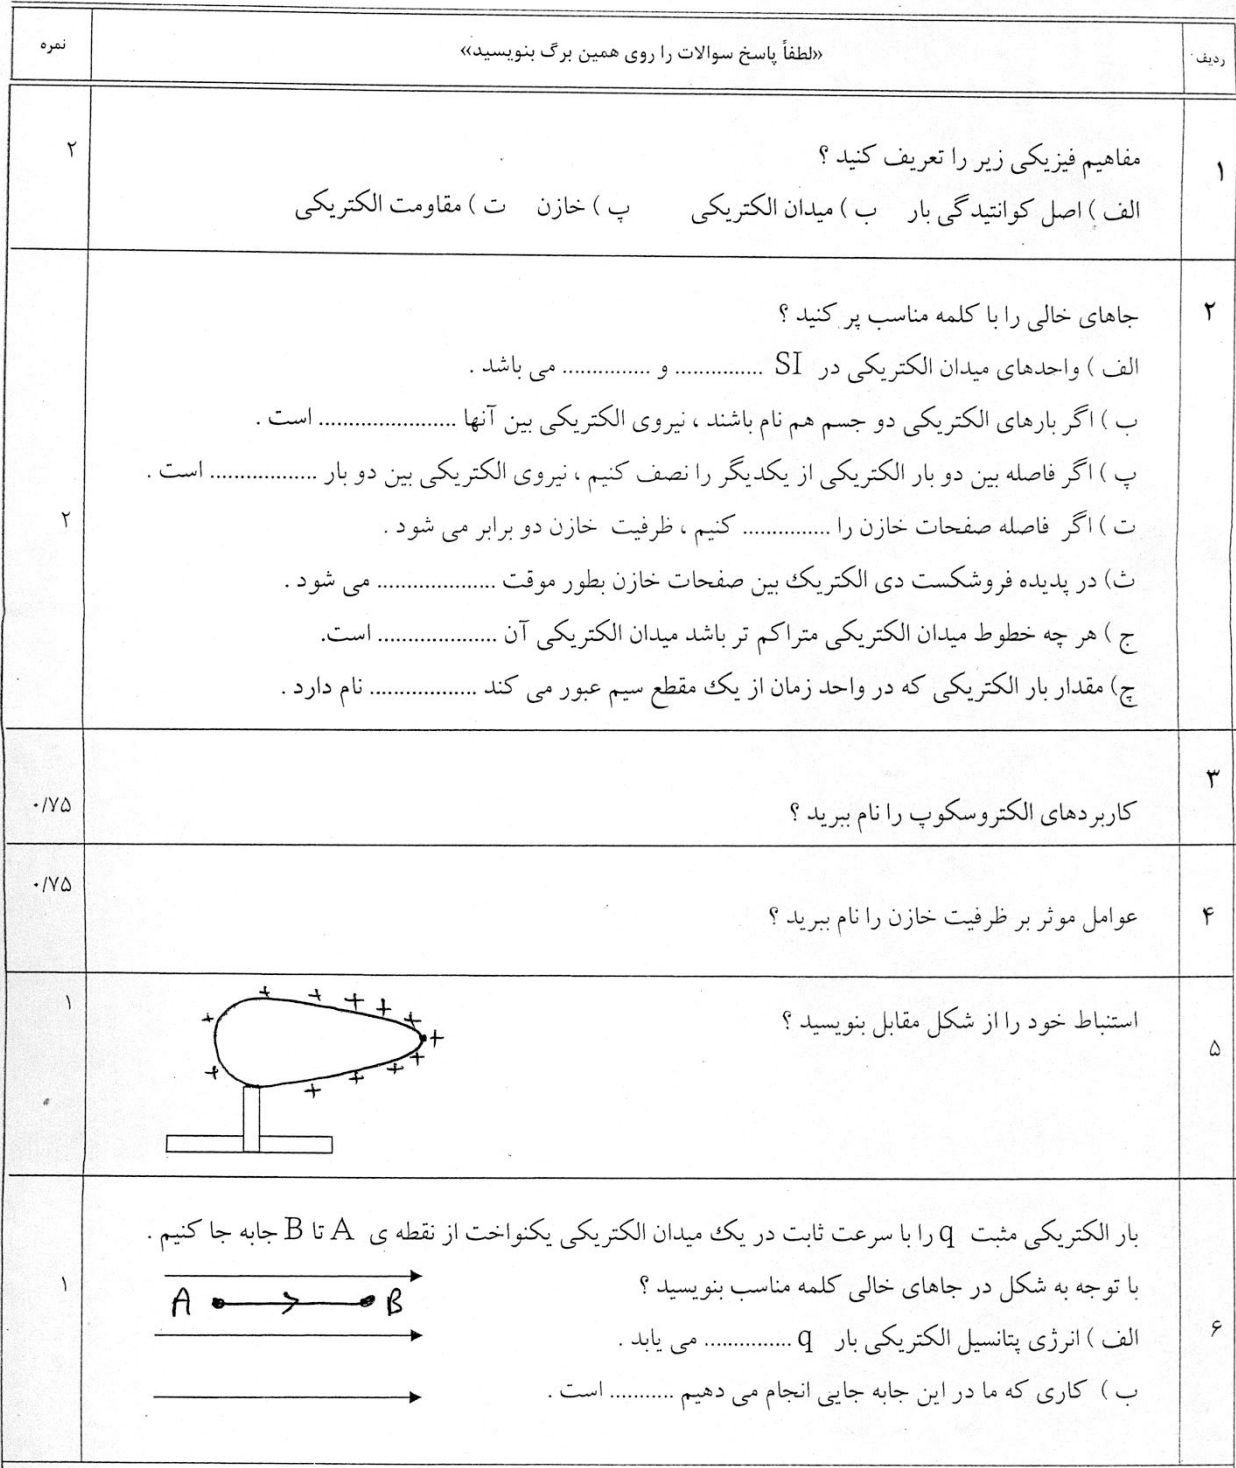 ردیف «لطفاً پاسخ سوالات را روی همین برگ بنویسید» نمره
۱ مفاهیم فیزیکی زیر را تعریف کنید ؟ ۲
الف ) اصل کوانتیدگی بار ب ) میدان الکتریکی پ ) خازن ت ) مقاومت الکتریکی
۲ جاهای خالی را با کلمه مناسب پر کنید ؟
الف ) واحدهای میدان الکتریکی در SI ............... و ............... می باشد .
ب ) اگر بارهای الکتریکی دو جسم هم نام باشند ، نیروی الکتریکی بین آنها ....................... است .
پ ) اگر فاصله بین دو بار الکتریکی از یکدیگر را نصف کنیم ، نیروی الکتریکی بین دو بار .................. است .
ت ) اگر فاصله صفحات خازن را ............... کنیم ، ظرفیت خازن دو برابر می شود . ۲
ث) در پدیده فروشکست دی الکتریک بین صفحات خازن بطور موقت .................... می شود .
ج ) هر چه خطوط میدان الکتریکی متراکم تر باشد میدان الکتریکی آن .................... است.
چ) مقدار بار الکتریکی که در واحد زمان از یک مقطع سیم عبور می کند .................. نام دارد .
۳ کاربردهای الکتروسکوپ را نام ببرید ؟ ۰/۷۵
۴ عوامل موثر بر ظرفیت خازن را نام ببرید ؟ ۰/۷۵
۵ استنباط خود را از شکل مقابل بنویسید ؟ ۱
+ + + + + + + + + + + + +
بار الکتریکی مثبت q را با سرعت ثابت در یک میدان الکتریکی یکنواخت از نقطه ی A تا B جابه جا کنیم .
با توجه به شکل در جاهای خالی کلمه مناسب بنویسید ؟ ۱
A B
۶ الف ) انرژی پتانسیل الکتریکی بار q ............... می یابد .
ب ) کاری که ما در این جابه جایی انجام می دهیم ........... است .